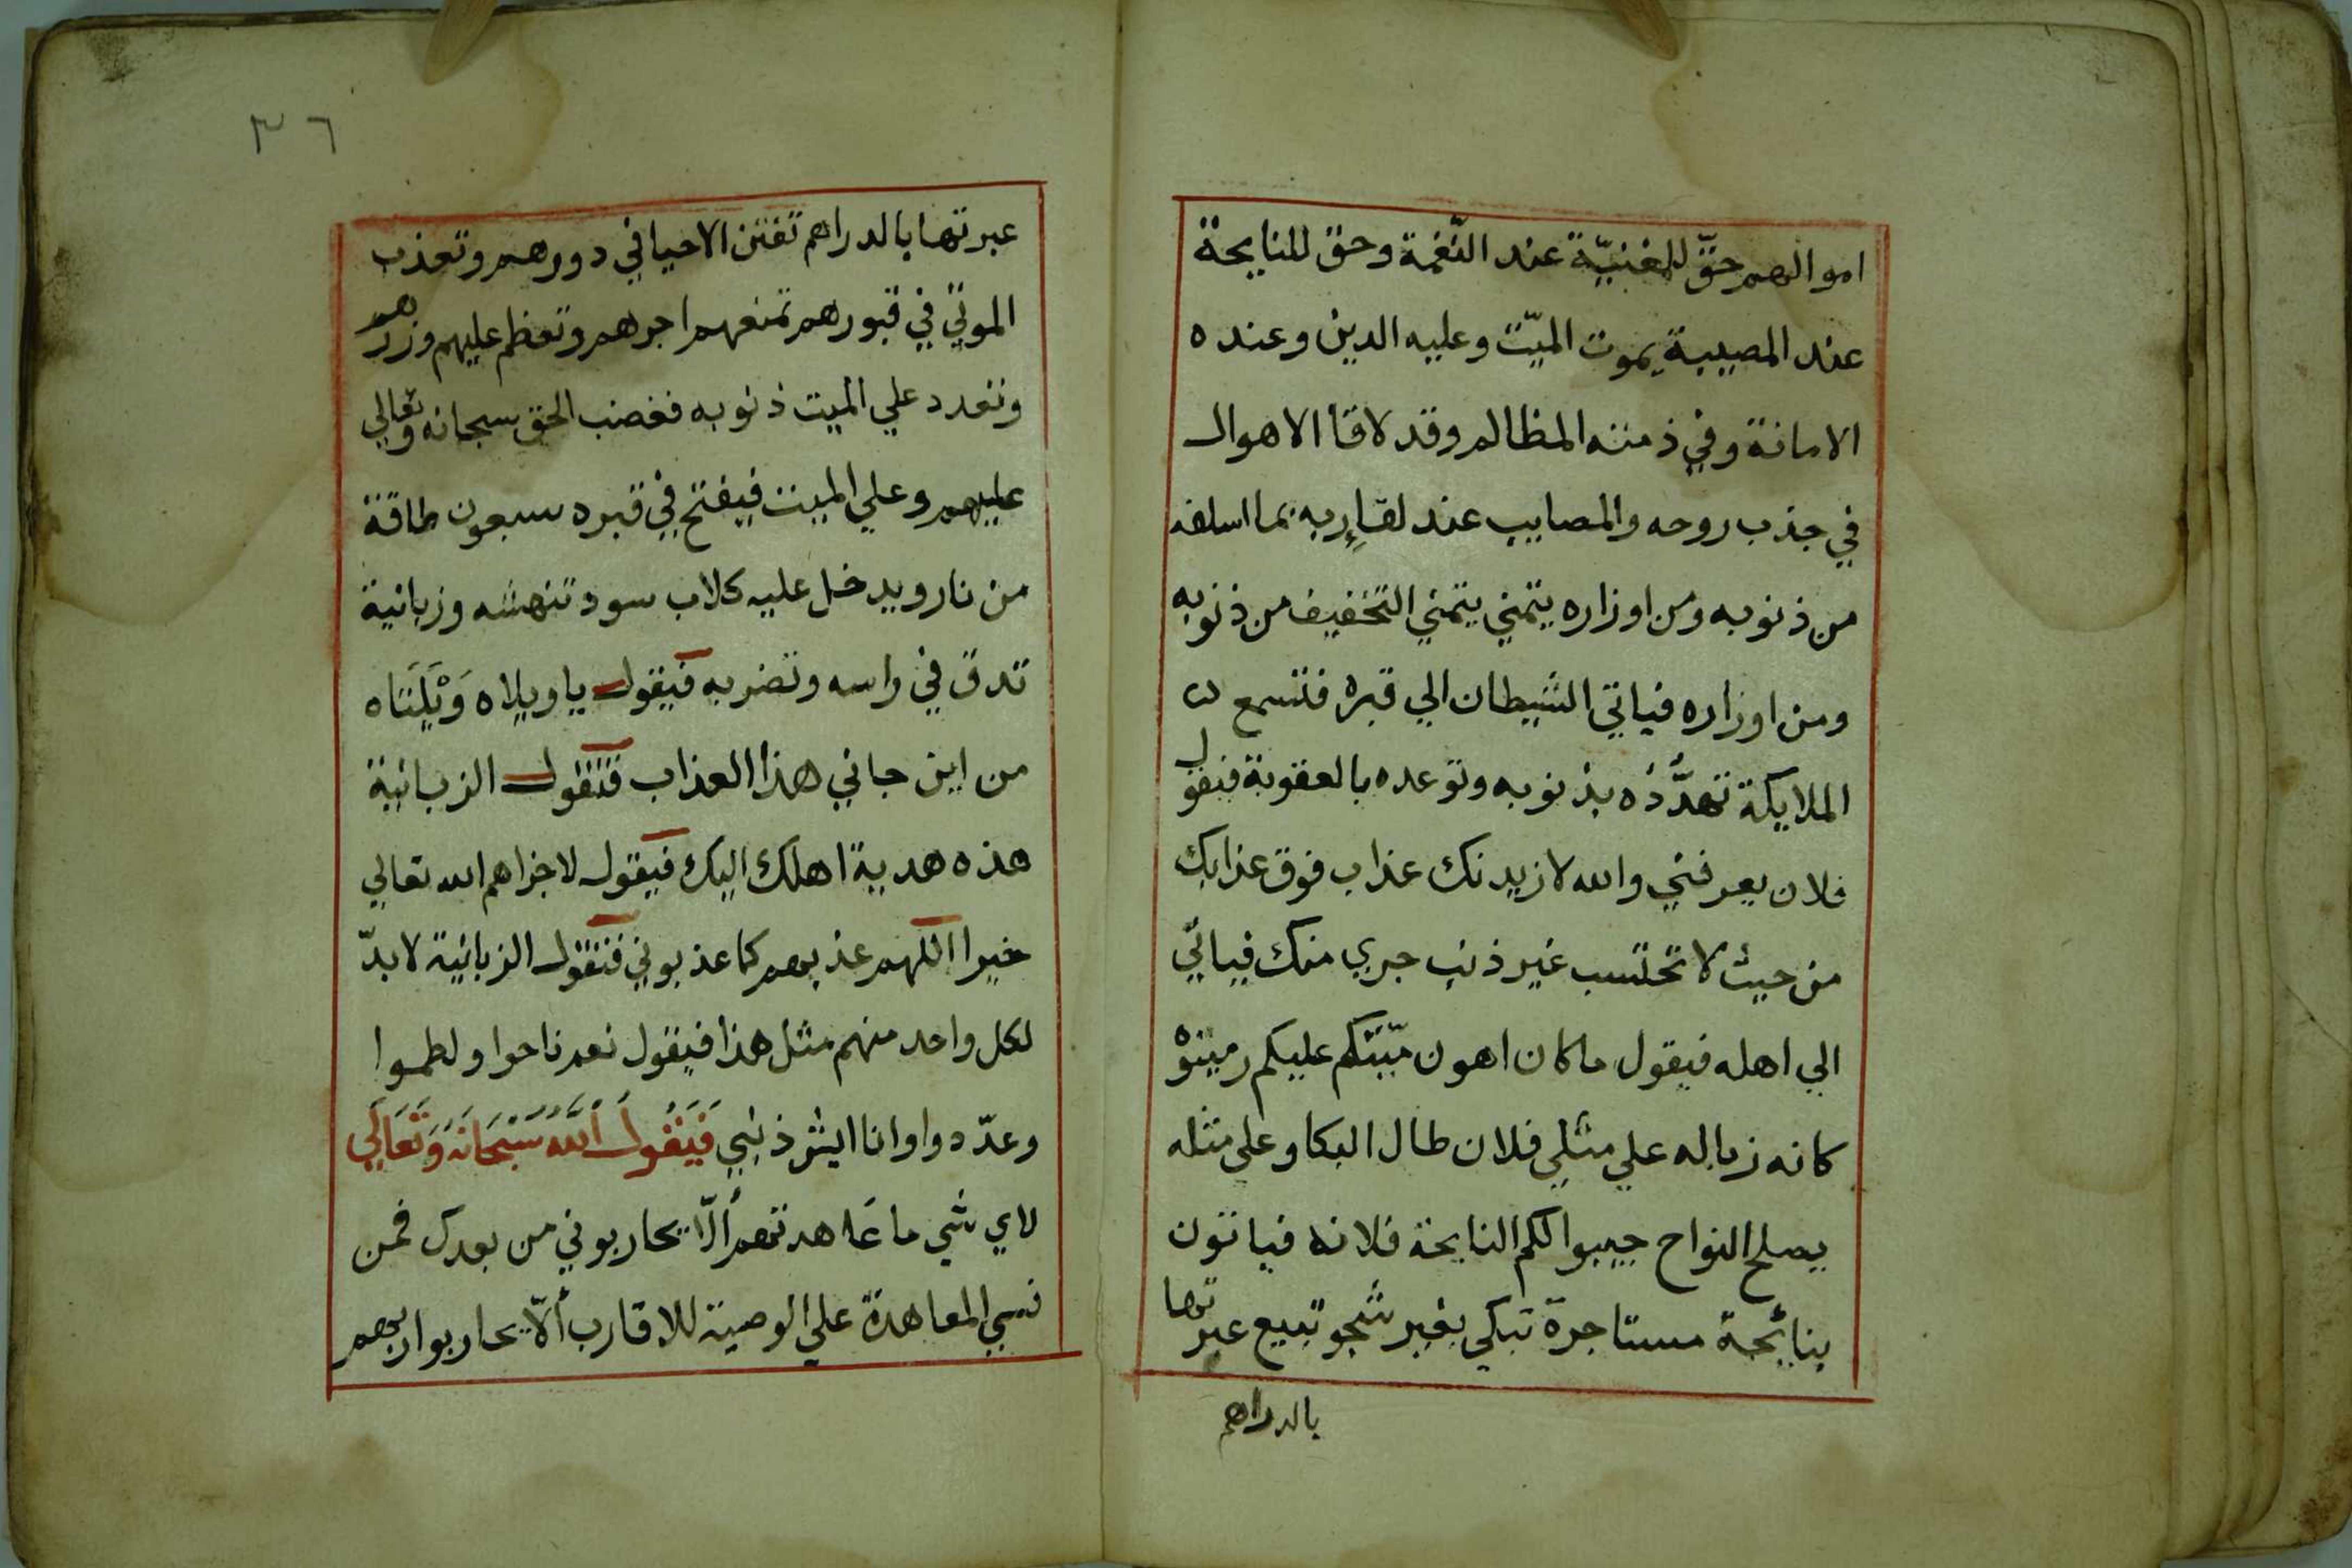 اموالهم حقّ للمغنيّة عند النّغمة وحق للنايحة
عند المصيبة يموت الميّت وعليه الدين وعنده
الامانة وفي ذمته المظالم وقد لاقا الاهوال
في جذب روحه والمصايب عند لقاء ربه بما اسلفه
من ذنوبه ومن اوزاره يتمني يتمني التخفيف من ذنوبه
ومن اوزاره فياتي الشيطان الي قبره فتسمع
الملايكة تهدّده بذنوبه وتوعده بالعقوبة فيقول
فلان يعرفني والله لازيدنك عذاب فوق عذابك
من حيث لا تحتسب غير ذنب جري منك فياتي
الي اهله فيقول ما كان اهون ميّتكم عليكم رميتوْه
كانه زباله علي مثلي فلان طال البكا وعلي مثله
يصلح النواح جيبوا لكم النايحة فلانه فياتون
بنائحة مستاجرة تبكي بغير شجو تبيع عبرتها
بالدراهم
٣٦
عبرتها بالدراهم تفتن الاحيا في دورهم وتعذب
الموتي في قبورهم تمنعهم اجرهم وتعظم عليهم وزرهم
وتعدد علي الميت ذنوبه فغضب الحق سبحانه وتعالي
عليهم وعلي الميت فيفتح في قبره سبعون طاقة
من نار ويدخل عليه كلاب سود تنهشه وزبانية
تدق في راسه وتضربه فيقول يا ويلاه وَيْلَتَاه
من اين جاني هذا العذاب فتقول الزبانية
هذه هدية اهلك اليك فيقول لا جزاهم الله تعالي
خيرا اللهم عذبهم كما عذبوني فتقول الزبانية لا بدّ
لكل واحد منهم مثل هذا فيقول نعم ناحوا ولطموا
وعدّدوا وانا ايش ذنبي فَيَقُولُ اَللَّهُ سُبْحَانَهُ وَتَعَالَي
لاي شي ما عَاهدتهم ألّا يحاربوني من بعدك فمن
نسي المعاهدة علي الوصية للاقارب ألّا يحاربوا ربهم